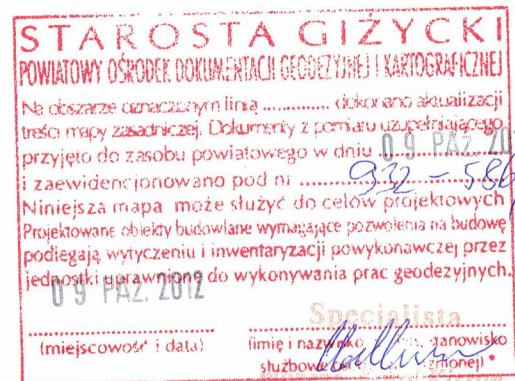 STAROSTA GIŻYCKI
POWIATOWY OŚRODEK DOKUMENTACJI GEODEZYJNEJ I KARTOGRAFICZNEJ
Na obszarze oznaczonym linią ............. dokonano aktualizacji
treści mapy zasadniczej. Dokumenty z pomiaru uzupełniającego
przyjęto do zasobu powiatowego w dniu 09 PAŹ. 20
i zaewidencjonowano pod nr 932-586
Niniejsza mapa może służyć do celów projektowych
Projektowane obiekty budowlane wymagające pozwolenia na budowę
podlegają wytyczeniu i inwentaryzacji powykonawczej przez
jednostki uprawnione do wykonywania prac geodezyjnych.
09 PAŹ. 2012
Specjalista
(miejscowość i data) (imię i nazwisko stanowisko
służbowe